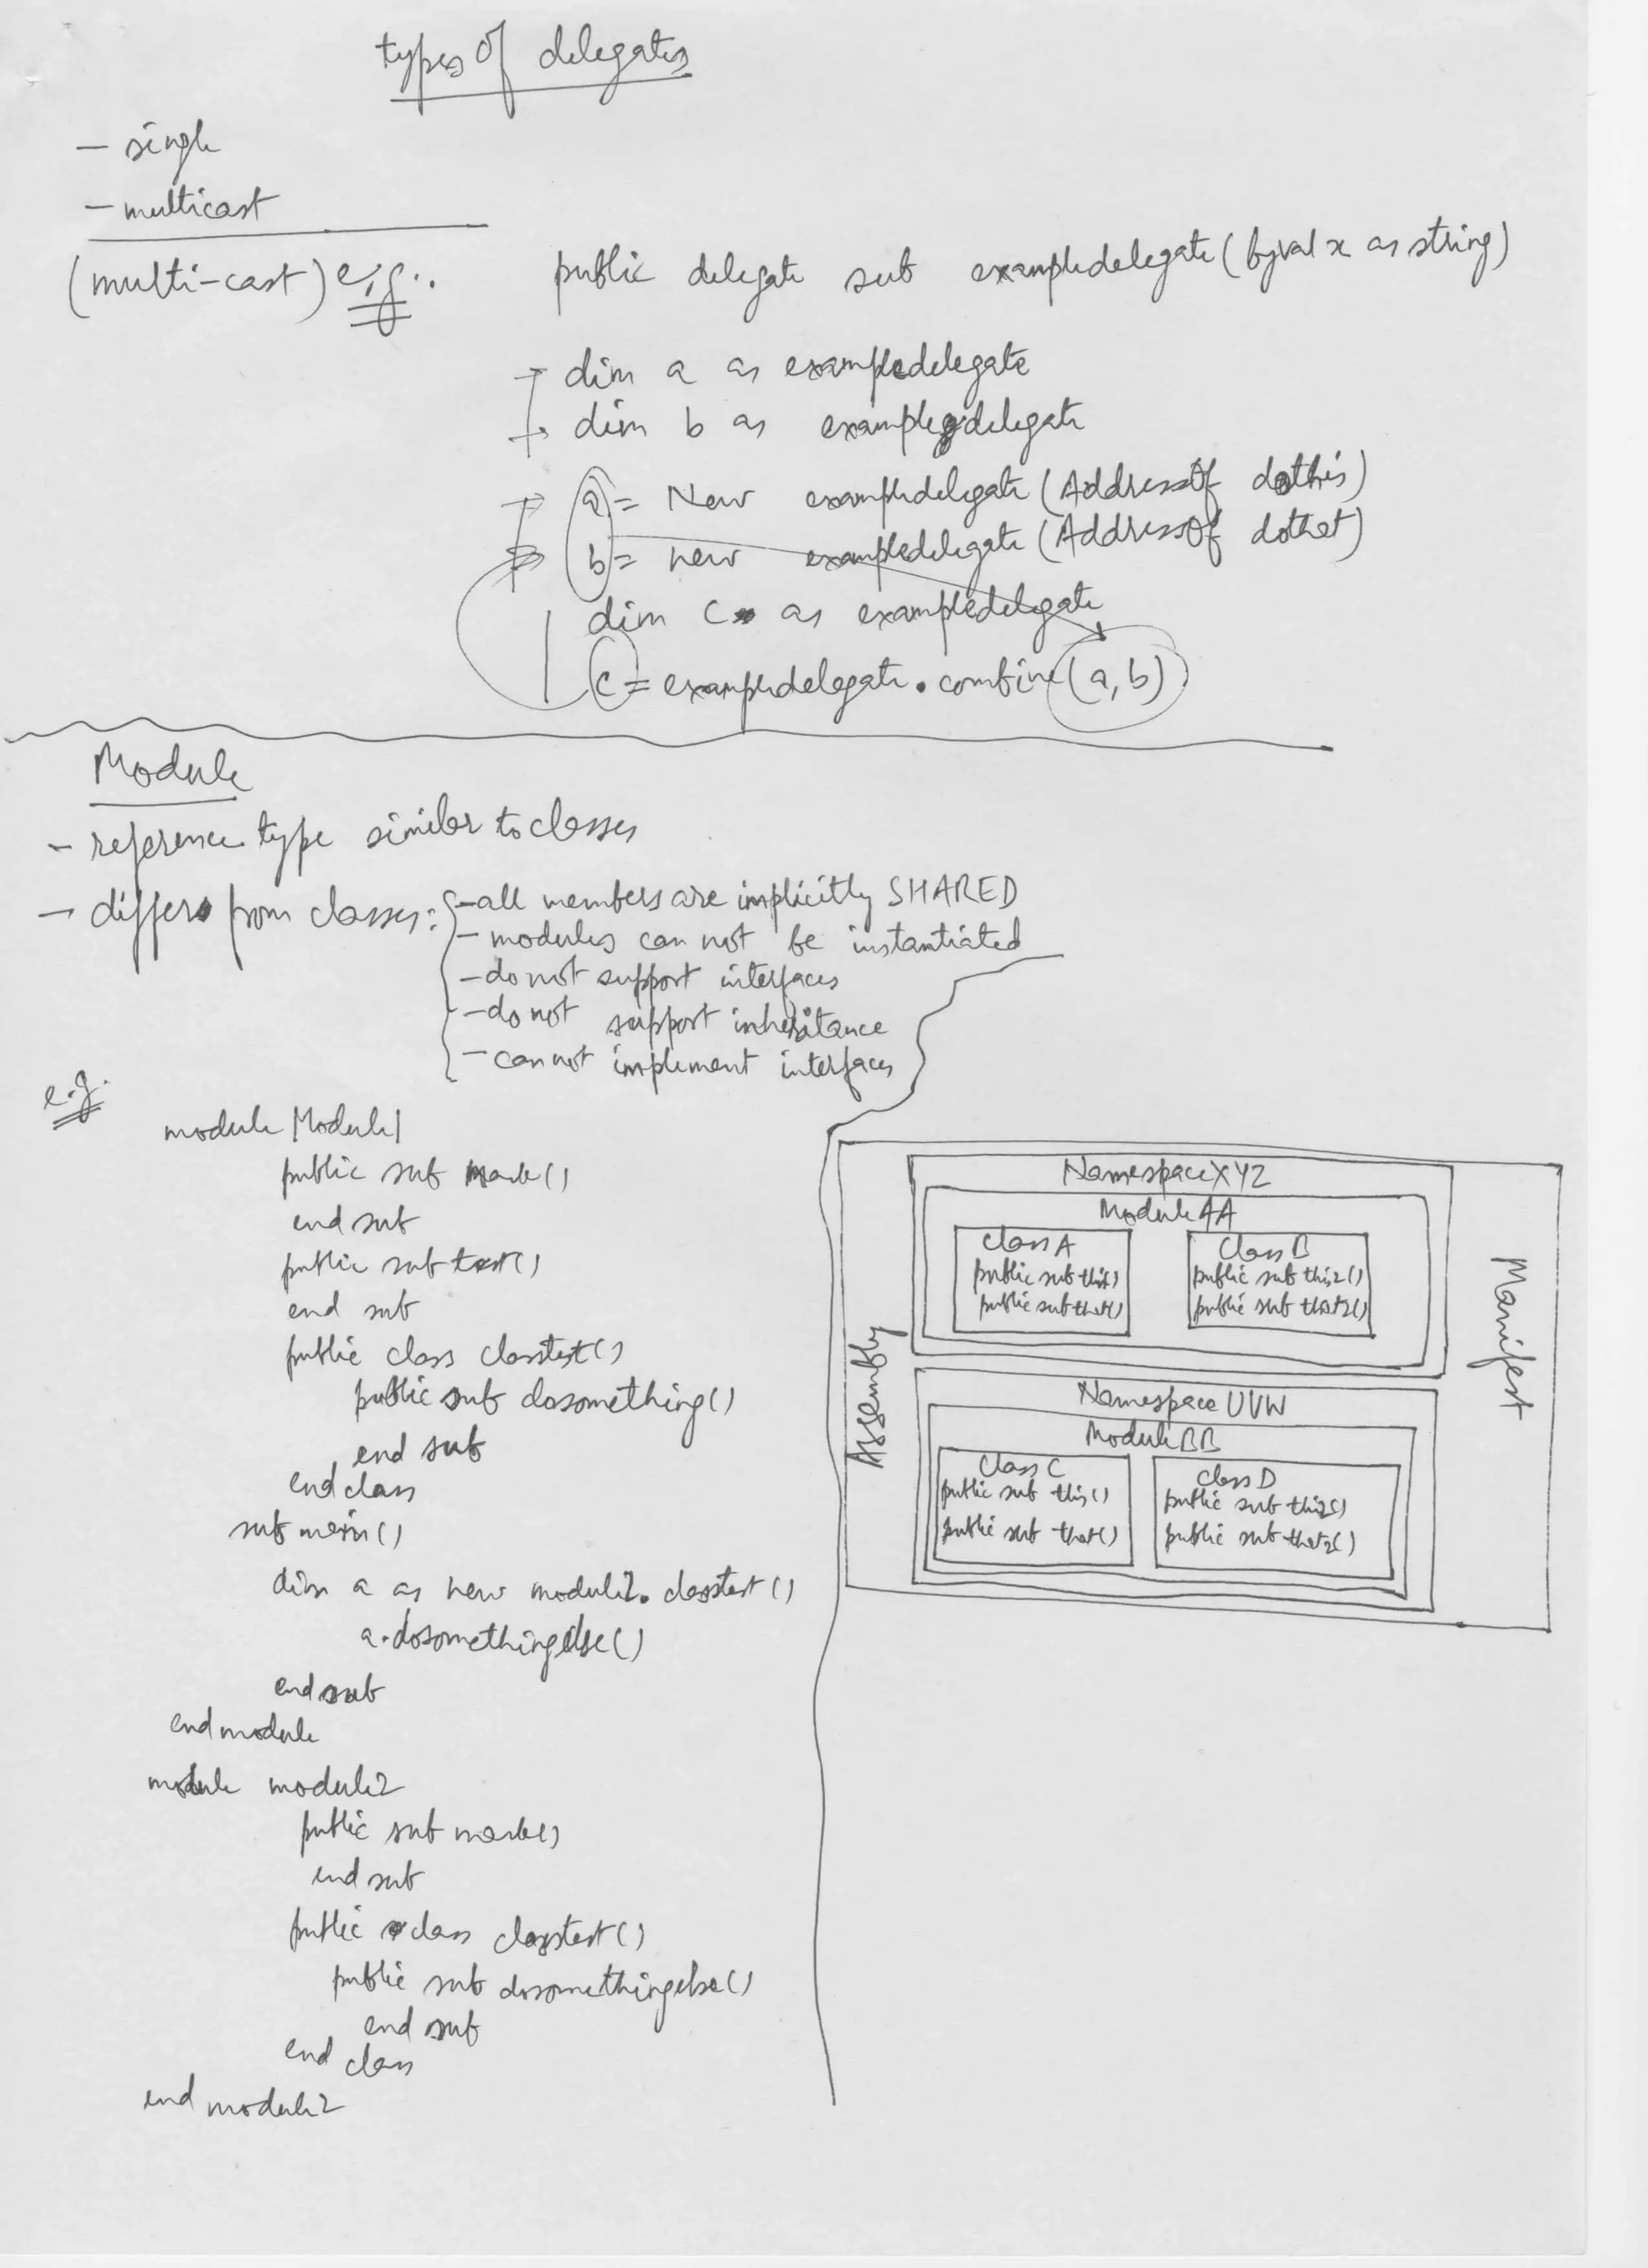 types of delegates
- single
- multicast
(multi-cast) e.g.. public delegate sub exampledelegate (byval x as string)
dim a as exampledelegate
dim b as exampledelegate
a = New exampledelegate (AddressOf dothis)
b = new exampledelegate (AddressOf dothat)
dim c as exampledelegate
c = exampledelegate.combine (a, b)
Module
- reference type similar to classes
- differs from classes: - all members are implicitly SHARED
- modules can not be instantiated
- do not support interfaces
- do not support inheritance
- can not implement interfaces
e.g.
module Module1
public sub mark()
end sub
public sub test()
end sub
public class classtest()
public sub dosomething()
end sub
end class
sub main()
dim a as new module2.classtest()
a.dosomethingelse()
end sub
end module
module module2
public sub mark()
end sub
public class classtest()
public sub dosomethingelse()
end sub
end class
end module2
Assembly
Namespace XYZ
Module AA
Class A
public sub this()
public sub that()
Class B
public sub this2()
public sub that2()
Namespace UVW
Module BB
Class C
public sub this()
public sub that()
Class D
public sub this2()
public sub that2()
Manifest